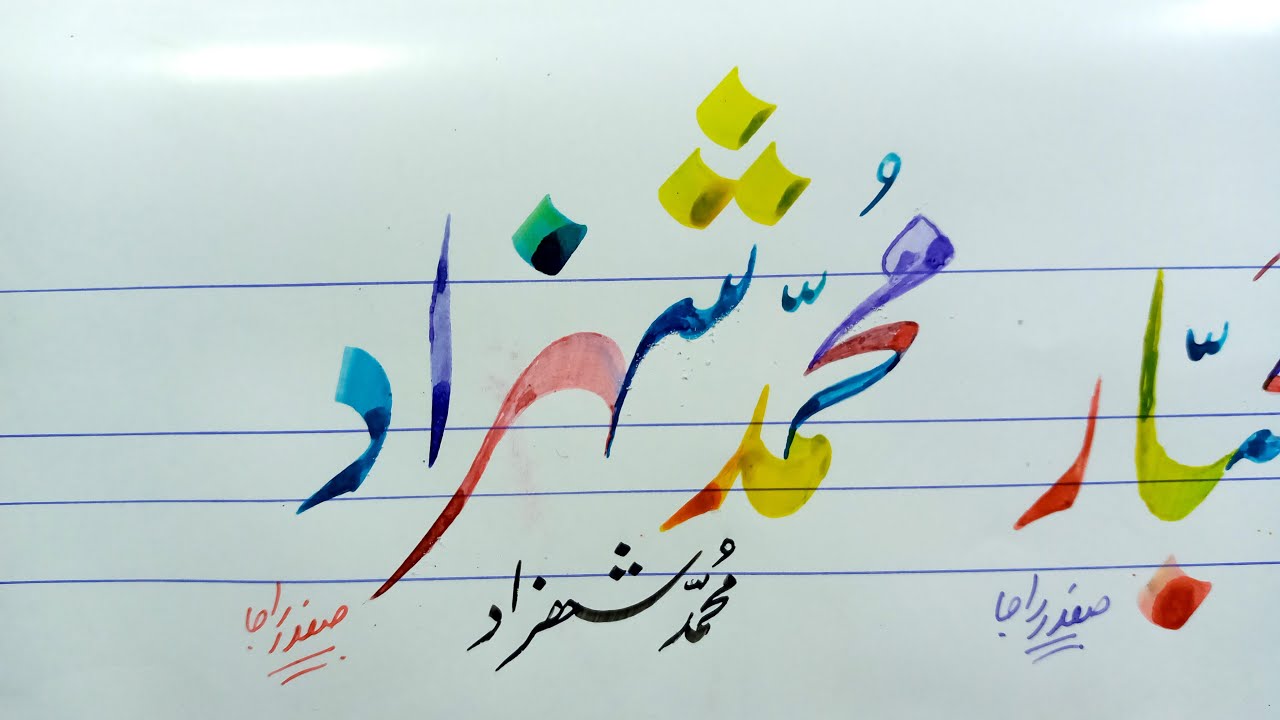 مُحمّد شہزاد
مُحمّد شہزاد
صفدر راجا
صفدر راجا